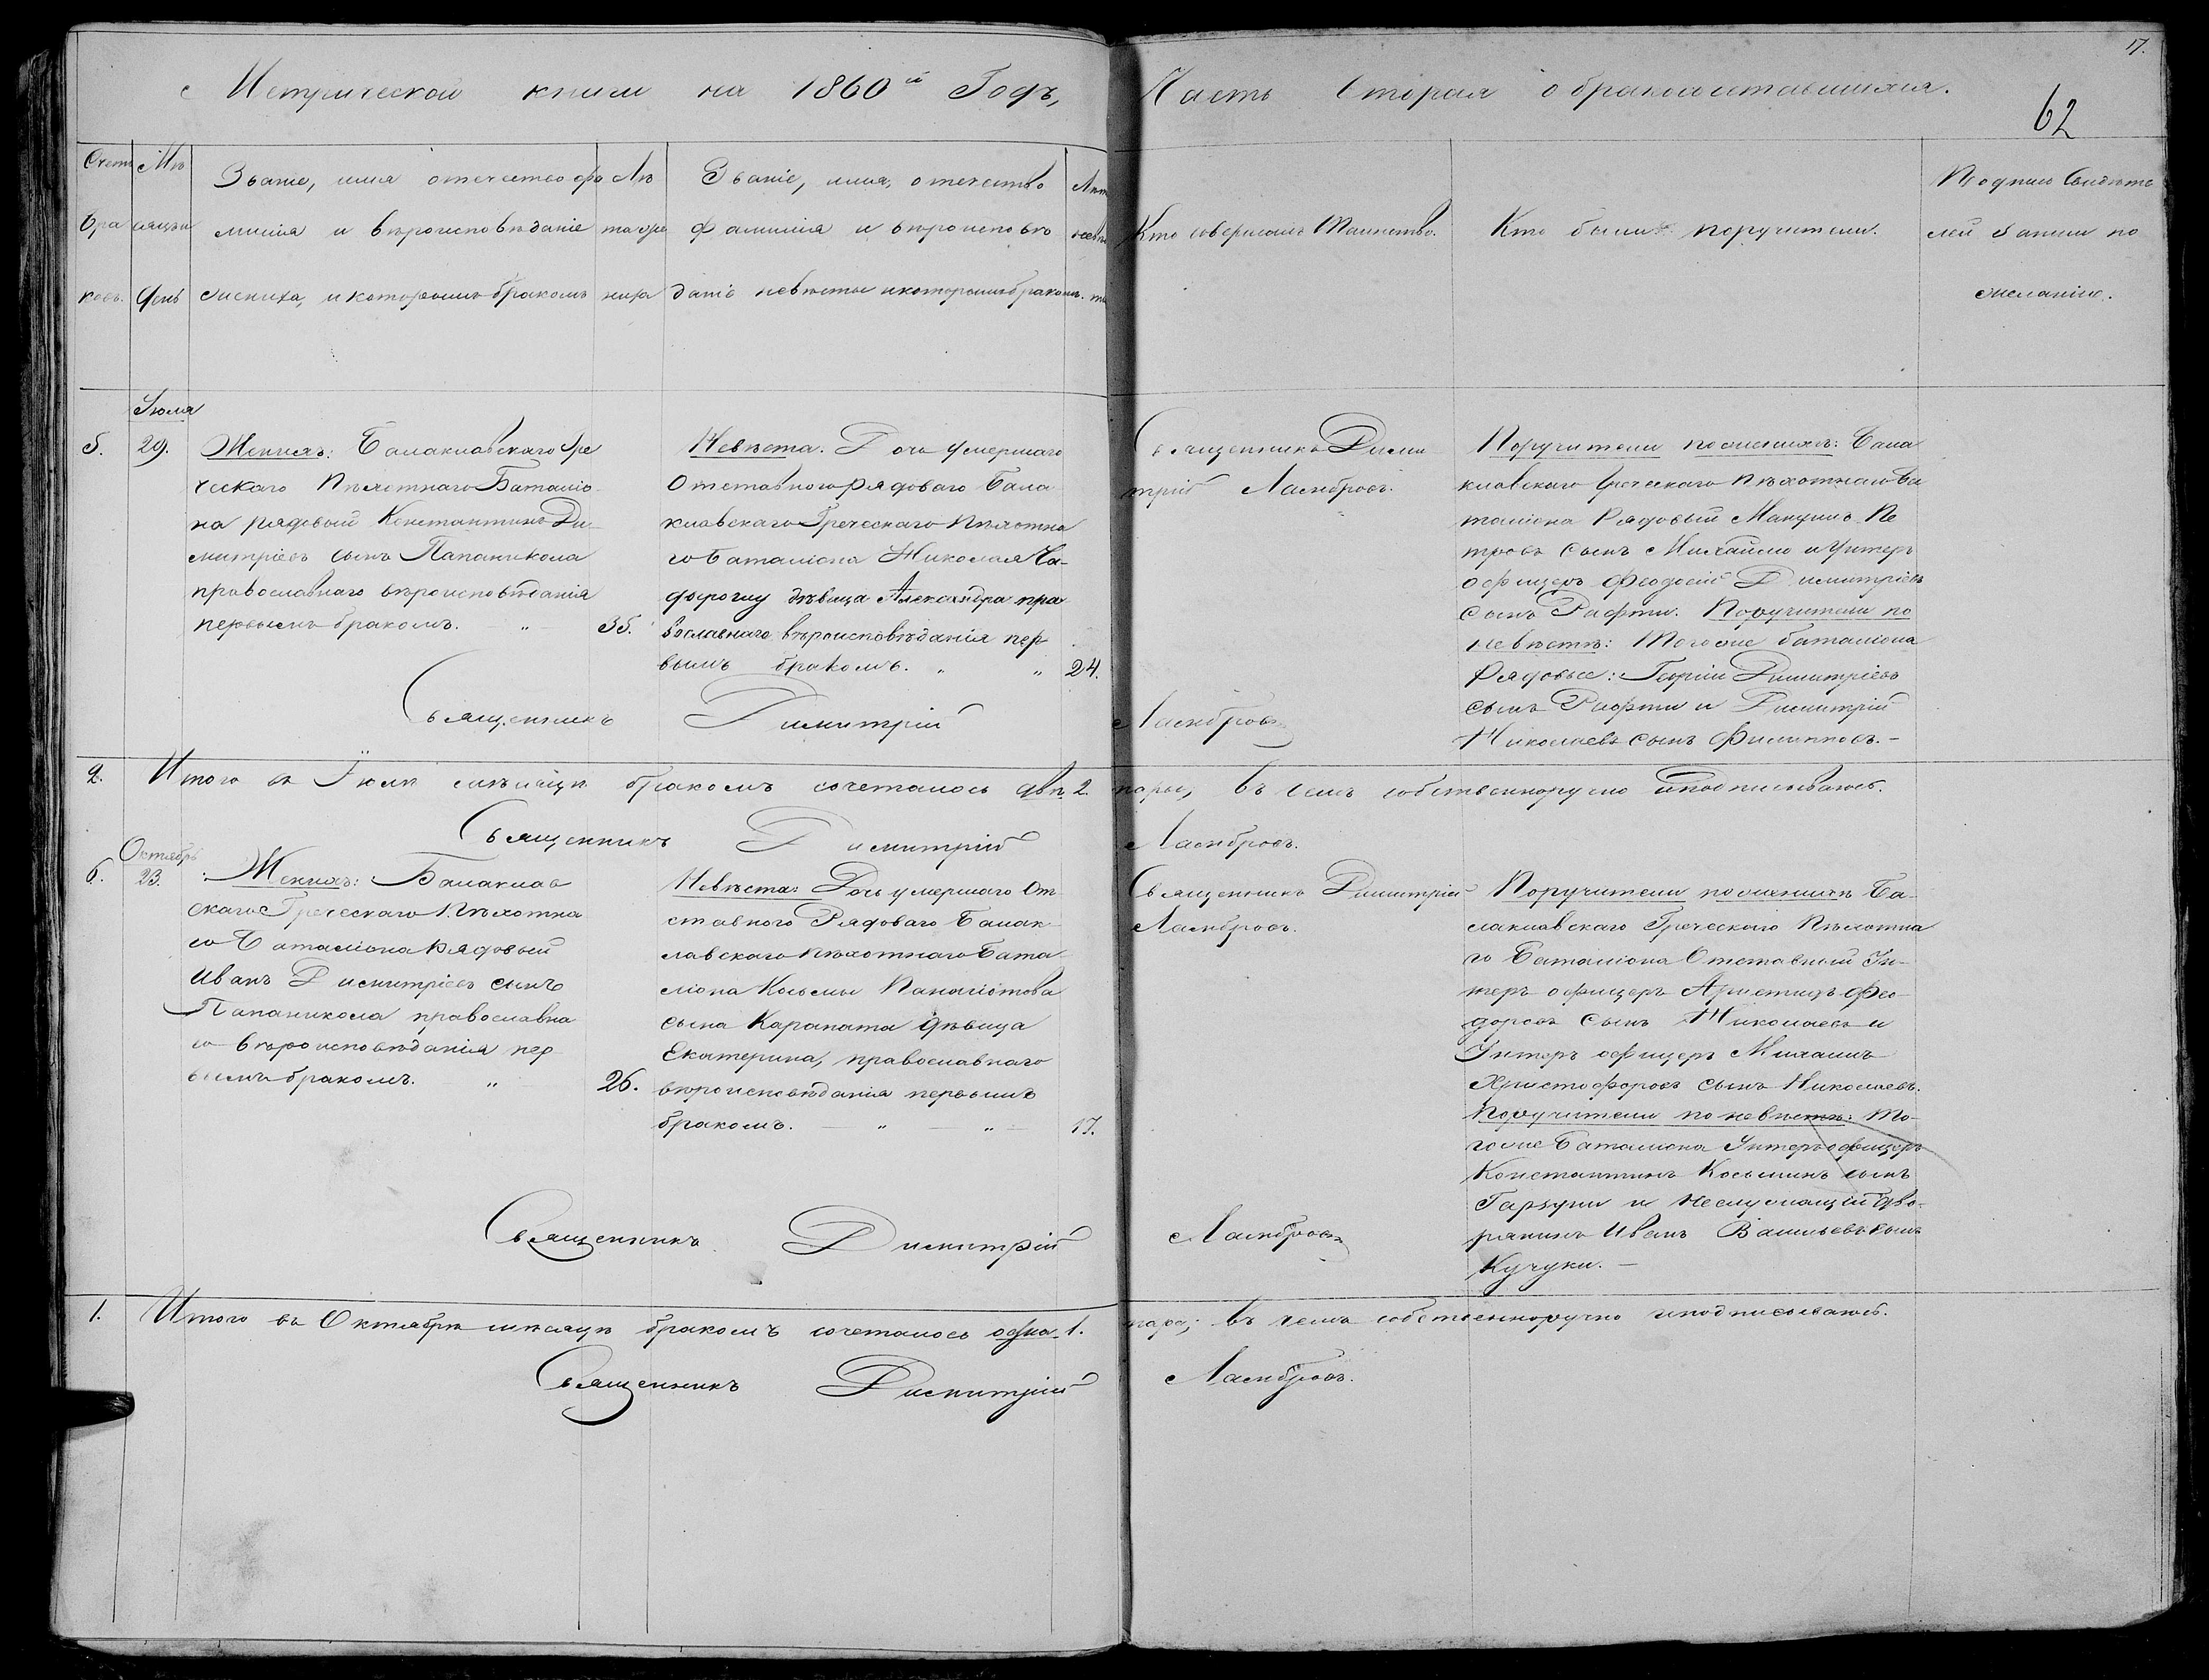 17.
62
Метрической книги на 1860й Годъ, Часть Вторая о бракосочетавшихся.
Счетъ браковъ.
Мѣсяцъ и день
Званіе, имя отечество фамилія и вѣроисповѣданіе жениха, и которымъ бракомъ
Лѣта жениха
Званіе, имя, отечество фамилія и вѣроисповѣданіе невѣсты и которымъ бракомъ.
Лѣта невѣсты
Кто совершалъ Таинство.
Кто были поручители.
Подпись Свидѣтелей записи по желанію.
Іюля
5. 29.
Женихъ: Балаклавскаго Гре
ческаго Пѣхотнаго Баталіо
на рядовый Константинъ Ди-
митріевъ сынъ Папаникола
православнаго вѣроисповѣданія
первымъ бракомъ. „ 35.
Невѣста. Дочь умершаго
Отставного рядоваго Бала
клавскаго Греческаго Пѣхотна
го Баталіона Николая
дѣвица Александра пра
вославнаго вѣроисповѣданія пер
вымъ бракомъ. „ „ 24.
Священникъ Дими
трій Ласкбровъ.
Поручители по женихѣ: Бала
клавскаго Греческаго Пѣхотнаго Ба
таліона Рядовый Мануилъ Пе
тровъ сынъ Михайли и Унтеръ
офицеръ Феодосій Димитріевъ
сынъ Рафти. Поручители по
невѣстѣ: Того же баталіона
Рядовые: Георгій Димитріевъ
сынъ Рафти и Димитрій
Николаевъ сынъ Филипповъ. –
Священникъ Димитрій Ласкбровъ
2. Итого въ Іюлѣ мѣсяцѣ бракомъ сочеталось двѣ 2. пары, въ чемъ собственноручно подписываюсь.
Священникъ Димитрій Ласкбровъ.
Октябрь
6. 23.
Женихъ: Балаклав
скаго Греческаго Пѣхотна
го Баталіона рядовый
Иванъ Димитріевъ сынъ
Папаникола православна
го вѣроисповѣданія пер
вымъ бракомъ. „ 26.
Невѣста: Дочь умершаго От
ставного Рядоваго Балак
лавскаго Пѣхотнаго Бата
ліона Косьмы Панагіотова
сына Карапата дѣвица
Екатерина, православнаго
вѣроисповѣданія первымъ
бракомъ. „ „ 17.
Священникъ Димитрій
Ласкбровъ.
Поручители по женихѣ Ба-
лаклавскаго Греческаго Пѣхотна
го Баталіона Отставный Ун-
теръ офицеръ Аристидъ Фео-
доровъ сынъ Николаевъ и
Унтеръ офицеръ Михаилъ
Христофоровъ сынъ Николаевъ.
Поручители по невѣстѣ: То-
го же Баталіона Унтеръ офицеръ
Константинъ Косьминъ сынъ
и Неслужащій дво-
рянинъ Иванъ Васильевъ сынъ
Кучуки. –
Священникъ Димитрій Ласкбровъ
1. Итого въ Октябрѣ мѣсяцѣ бракомъ сочеталось одна 1. пара; въ чемъ собственноручно подписываюсь.
Священникъ Димитрій Ласкбровъ.